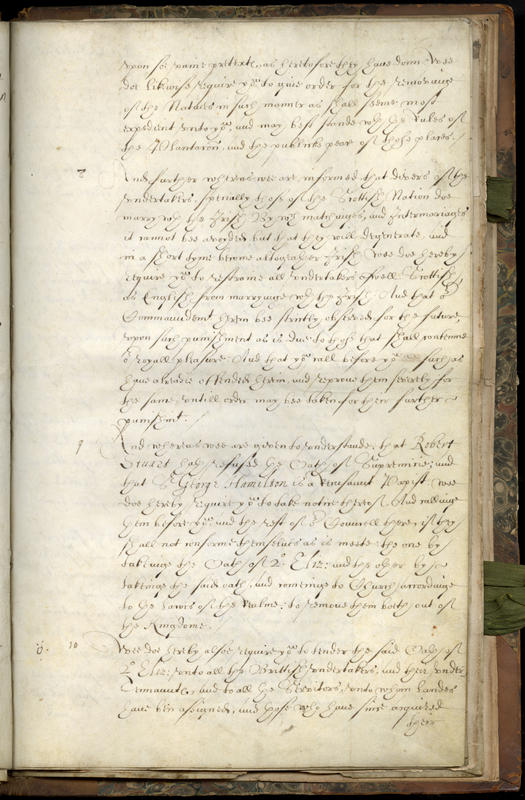 upon ye same pretexte, as heretofore they have donn Wee
doe likwise require yow to give order for the removaing
of the Natives in such manner as shall seeme most
expedient unto yow, and may best stande with the Rules of
the Plantacon, and the publicke peace of those places.
8 And further whereas wee are informed that divers of the
undertakers, specially those of the Scottish Nation doe
marry with the Irish By wch matchinges, and Intermariages
it cannot bee avoyded but that they will degenerate, and
in a short tyme become altogeather Irish, Wee doe hereby
require yow to restraine all undertakers aswell Scottish
as English from marryage wth the Irish And that or
Commaundemt herein bee strictly observed for the future,
upon such punishment as is due to those that shall contemne
or royall pleasure And that yow call before yow such as
have alreadie offended therein, and reprove them severely for
the same, untill order may bee taken for their further
punishmt.
9 And whereas wee are given to understande, that Robert
Stuart hath refused the Oath of Supremacie; and
that Sr George Hamilton is a Recusant Papist, Wee
doe hereby require yow to take notice thereof And callinge
them before yow and the rest of or Councell there, if they
shall not conforme themselves as is meete the one by
takeinge the Oath of Q. Eliz: and the other by
takeinge the said oath, and comeinge to Church accordinge
to the Lawes of the Realme; to remove them both out of
the Kingdome.
10 Wee doe hereby alsoe require yow to tender the said Oath of
Q. Eliz: unto all the Brittish undertakers, and their under
tennauntes, and to all the Servitors, unto whom Landes
have ben assigned, and those who have since acquired
their